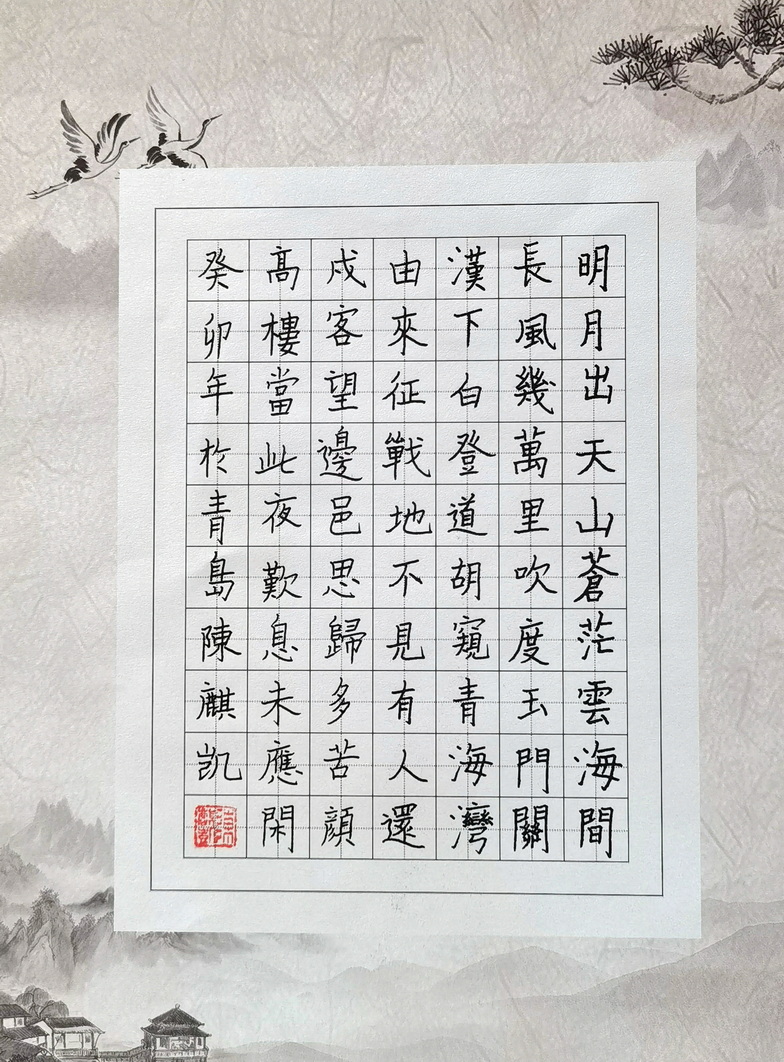 明月出天山蒼茫雲海間
長風幾萬里吹度玉門關
漢下白登道胡窺青海灣
由來征戰地不見有人還
戍客望邊邑思歸多苦顔
高樓當此夜歎息未應閑
癸卯年於青島陳麒凱